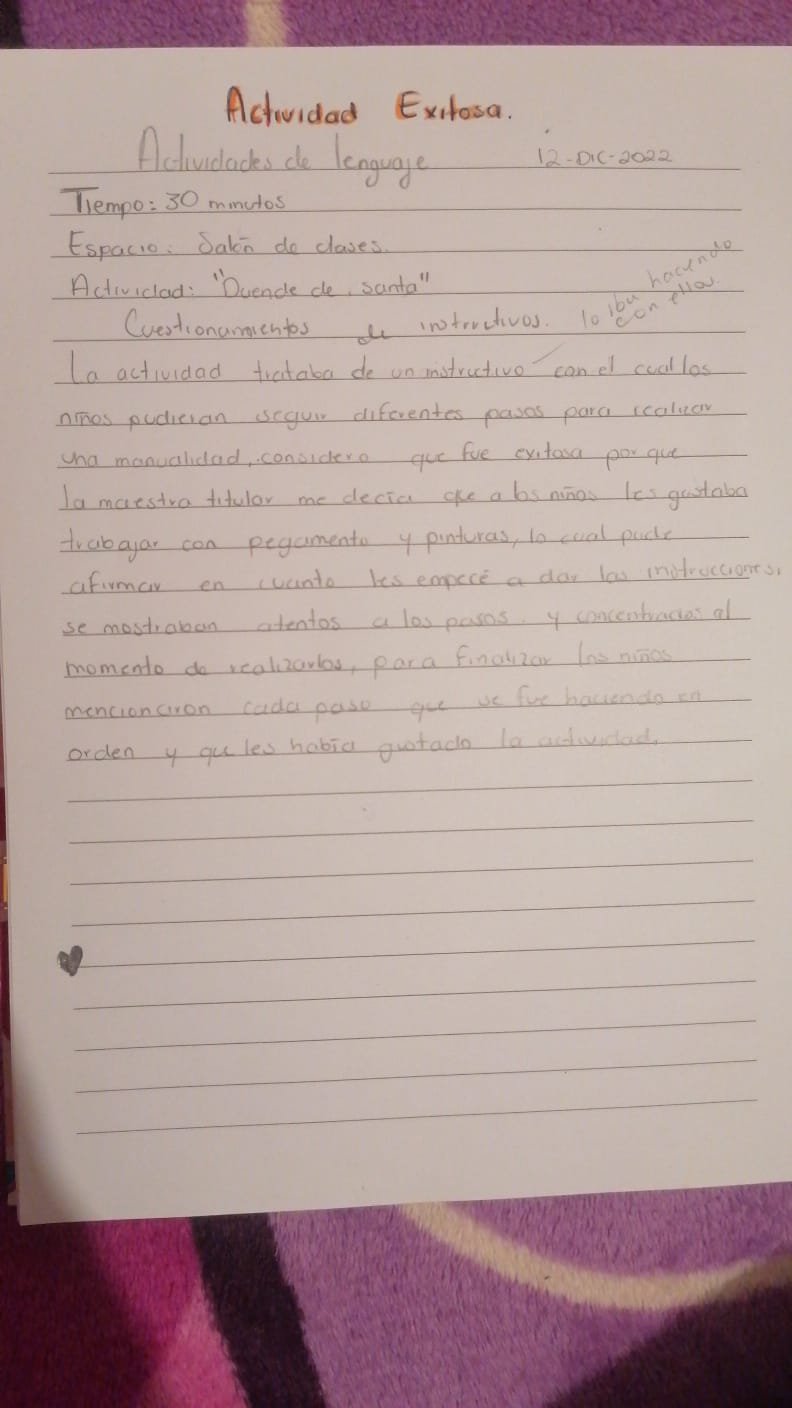 Actividad Exitosa.
Actividades de lenguaje 12-DIC-2022
Tiempo: 30 minutos
Espacio: Salón de clases.
Actividad: "Duende de santa"
Cuestionamientos de instructivos. lo iba haciendo
con ellos.
La actividad trataba de un instructivo con el cual los
niños pudieran seguir diferentes pasos para realizar
una manualidad, considero que fue exitosa por que
la maestra titular me decía que a los niños les gustaba
trabajar con pegamento y pinturas, lo cual pude
afirmar en cuanto les empecé a dar las instrucciones,
se mostraban atentos a los pasos y concentrados al
momento de realizarlos, para finalizar los niños
mencionaron cada paso que se fue haciendo en
orden y que les había gustado la actividad.